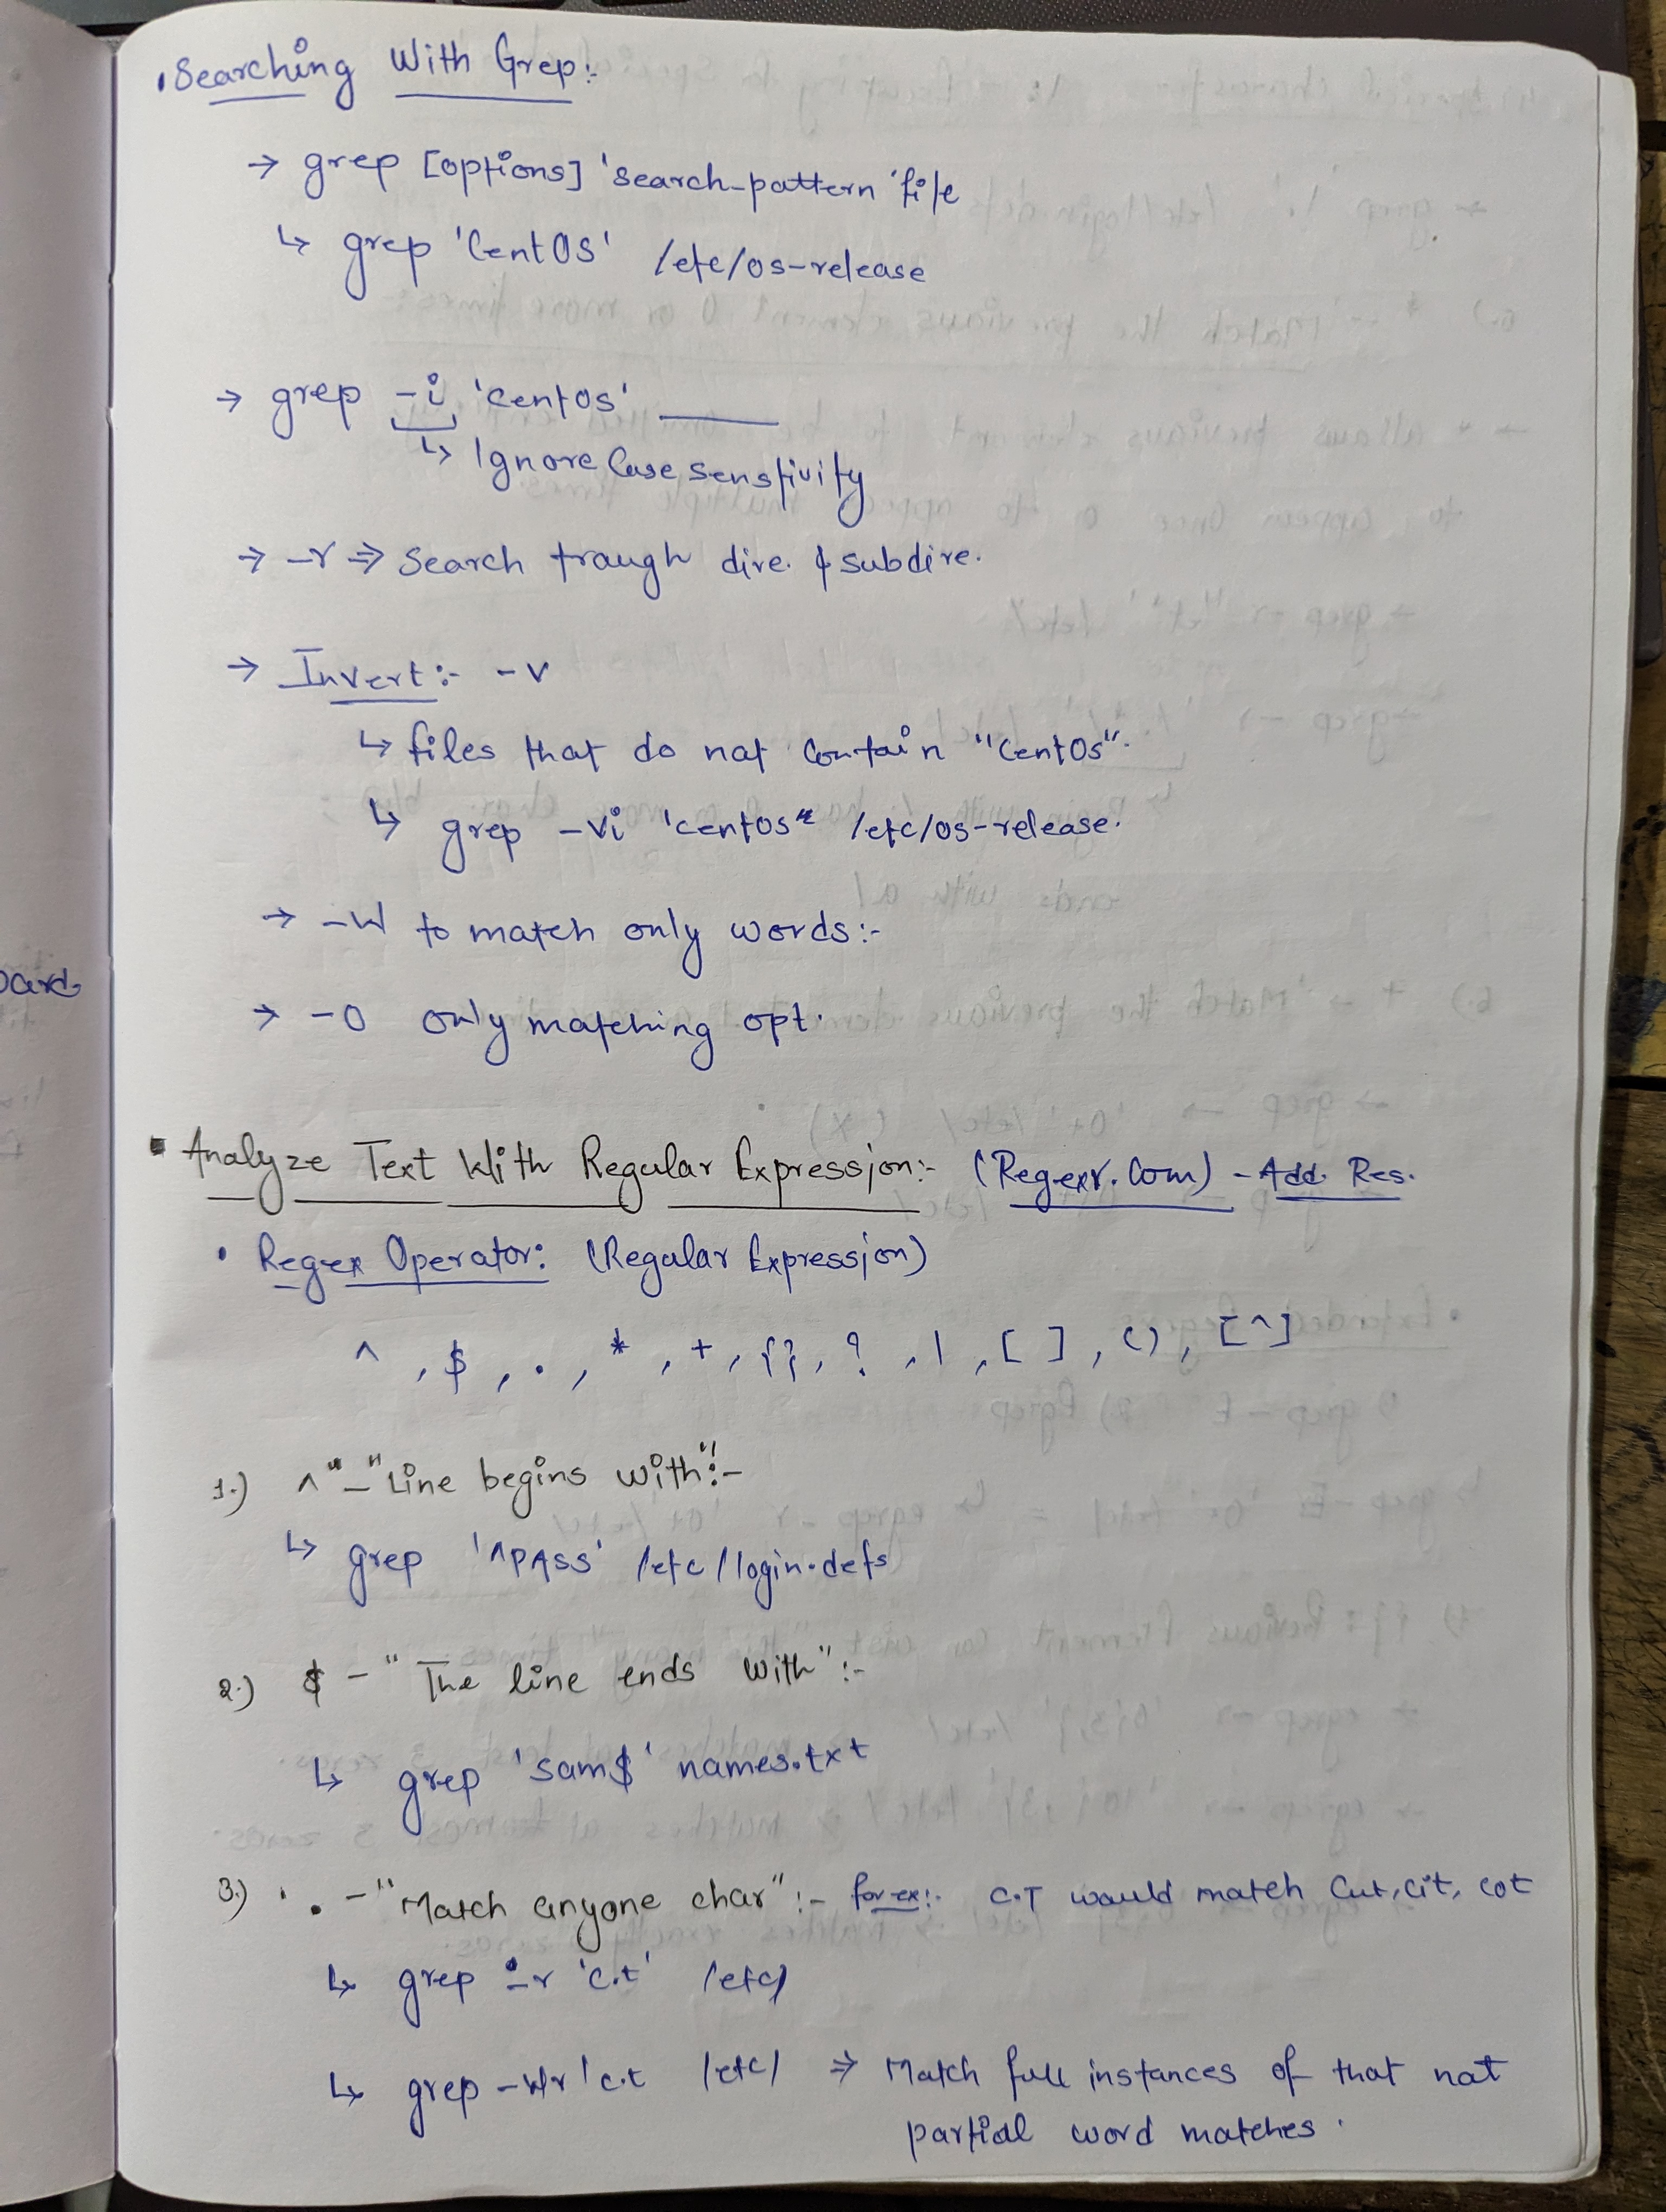 • Searching With Grep:-
→ grep [options] 'search-pattern' file
↳ grep 'CentOS' /etc/os-release
→ grep -i 'centos' ____
↳ Ignore Case senstivity
→ -r ⇒ Search traugh dire. & subdire.
→ Invert:- -v
↳ files that do not contain "CentOs".
↳ grep -vi 'centos" /etc/os-release.
→ -W to match only words:-
→ -O only matching opt.
▪ Analyze Text With Regular Expression:- (Regexr.Com) - Add. Res.
• Regex Operator: (Regular Expression)
^ , $ , . , * , + , {} , ? , | , [ ] , () , [^]
1.) ^"_"Line begins with":-
↳ grep '^PASS' /etc/login.defs
2.) $ - "The line ends with":-
↳ grep 'sam$' names.txt
3.) . - "Match anyone char":- for ex:- C.T would match Cut, Cit, cot
↳ grep -r 'c.t' /etc/
↳ grep -wr 'c.t /etc/ ⇒ Match full instances of that not
partial word matches.
oard